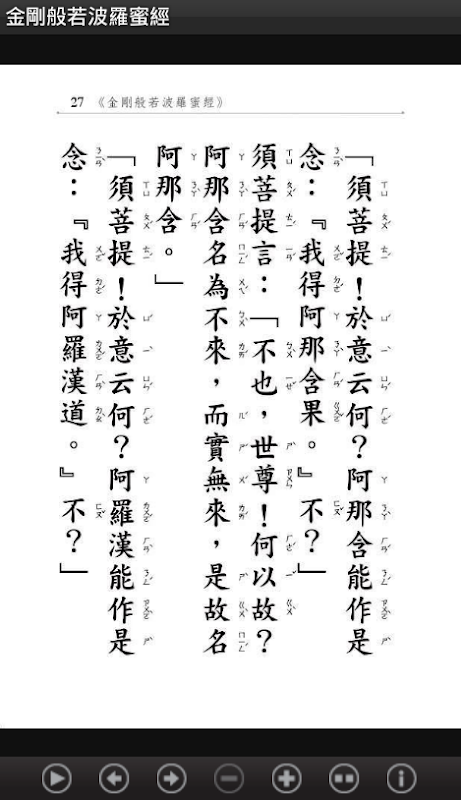 金剛般若波羅蜜經
27 《金剛般若波羅蜜經》
「須菩提！於意云何？阿那含能作是
念：『我得阿那含果。』不？」
須菩提言：「不也，世尊！何以故？
阿那含名為不來，而實無來，是故名
阿那含。」
「須菩提！於意云何？阿羅漢能作是
念：『我得阿羅漢道。』不？」